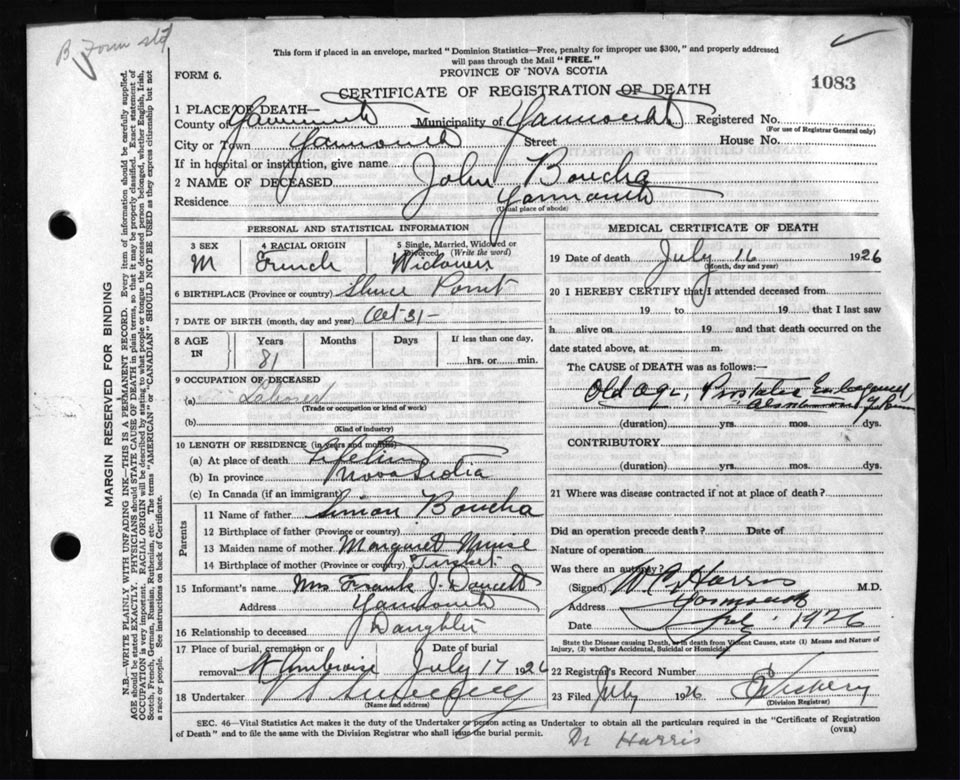 B Form std
This form if placed in an envelope, marked "Dominion Statistics—Free, penalty for improper use $300," and properly addressed
will pass through the Mail "FREE."
PROVINCE OF NOVA SCOTIA
FORM 6.
CERTIFICATE OF REGISTRATION OF DEATH
1083
1 PLACE OF DEATH—
County of Yarmouth Municipality of Yarmouth Registered No.
(For use of Registrar General only)
City or Town Yarmouth Street House No.
If in hospital or institution, give name
2 NAME OF DECEASED John Boucha
Residence Yarmouth
(Usual place of abode)
PERSONAL AND STATISTICAL INFORMATION
3 SEX 4 RACIAL ORIGIN 5 Single, Married, Widowed or
Divorced (Write the word)
M French Widower
6 BIRTHPLACE (Province or country) Sluice Point
7 DATE OF BIRTH (month, day and year) Oct 31—
8 AGE IN Years Months Days If less than one day,
81 hrs. or min.
9 OCCUPATION OF DECEASED
(a) Laborer
(Trade or occupation or kind of work)
(b)
(Kind of industry)
10 LENGTH OF RESIDENCE (in years and months)
(a) At place of death Lifetime
(b) In province Nova Scotia
(c) In Canada (if an immigrant)
Parents
11 Name of father Simon Boucha
12 Birthplace of father (Province or country)
13 Maiden name of mother Margaret Muise
14 Birthplace of mother (Province or country) Tusket
15 Informant's name Mrs Frank J. Doucett
Address Yarmouth
16 Relationship to deceased Daughter
17 Place of burial, cremation or Date of burial
removal St Ambroise July 17 1926
18 Undertaker
(Name and address)
MEDICAL CERTIFICATE OF DEATH
19 Date of death July 16 1926
(Month, day and year)
20 I HEREBY CERTIFY that I attended deceased from
19 to 19 that I last saw
h alive on 19 and that death occurred on the
date stated above, at m.
The CAUSE of DEATH was as follows:—
Old age, Prostate Enlargement
(duration) yrs. mos. dys.
CONTRIBUTORY
(duration) yrs. mos. dys.
21 Where was disease contracted if not at place of death?
Did an operation precede death? Date of
Nature of operation
Was there an autopsy?
(Signed) W C Harris M.D.
Address Yarmouth
Date July 1926
State the Disease causing Death, or in death from Violent Causes, state (1) Means and Nature of
Injury, (2) whether Accidental, Suicidal or Homicidal.
22 Registrar's Record Number
23 Filed July 1926
(Division Registrar)
SEC. 46—Vital Statistics Act makes it the duty of the Undertaker or person acting as Undertaker to obtain all the particulars required in the "Certificate of Registration
of Death" and to file the same with the Division Registrar who shall issue the burial permit.
(OVER)
Dr Harris
MARGIN RESERVED FOR BINDING
N.B.—WRITE PLAINLY WITH UNFADING INK—THIS IS A PERMANENT RECORD. Every item of information should be carefully supplied.
AGE should be stated EXACTLY. PHYSICIANS should STATE CAUSE OF DEATH in plain terms, so that it may be properly classified. Exact statement of
OCCUPATION is very important. RACIAL ORIGIN will be described by stating to what people or tongue the deceased person belonged, whether English, Irish,
Scotch, French, German, Russian, Ruthenian, etc. The terms "AMERICAN" or "CANADIAN" SHOULD NOT BE USED as they express citizenship but not
a race or people. See instructions on back of Certificate.